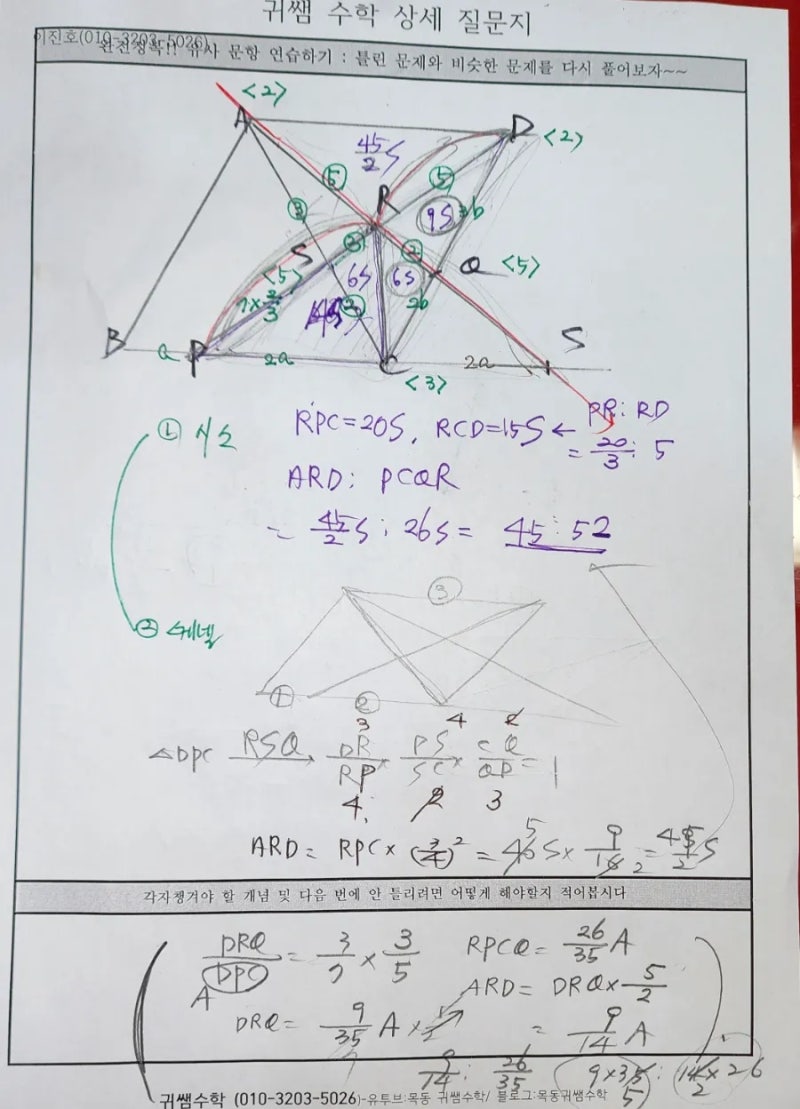 귀쌤 수학 상세 질문지
이진호(010-3203-5026)
완전정복!! 유사 문항 연습하기 : 틀린 문제와 비슷한 문제를 다시 풀어보자~~
A <2>
D <2>
45/2 S
⑤ ⑤
③
R
9S 3b
S
② Q <5>
<5>
6S 6S 2b
②
B a P 2a C 2a S
<3>
① 시소
RPC=20S, RCD=15S ← PR : RD
= 20/3 : 5
ARD : PCQR
= 45/2 S : 26S = 45 : 52
② 쉐넬
③
① ②
△DPC RSQ → DR/RP × PS/SC × CQ/QD = 1
3 4 2
4 2 3
ARD = RPC × (3/4)² = 40S × 9/16 = 45/2 S
5 2
각자챙겨야 할 개념 및 다음 번에 안 틀리려면 어떻게 해야할지 적어봅시다
DRQ/DPC = 3/7 × 3/5 RPCQ = 26/35 A
A ARD = DRQ × 5/2
DRQ = 9/35 A = 9/14 A
9/14 : 26/35 9×35 : 14×26
5 2
귀쌤수학 (010-3203-5026)-유투브:목동 귀쌤수학/ 블로그:목동귀쌤수학